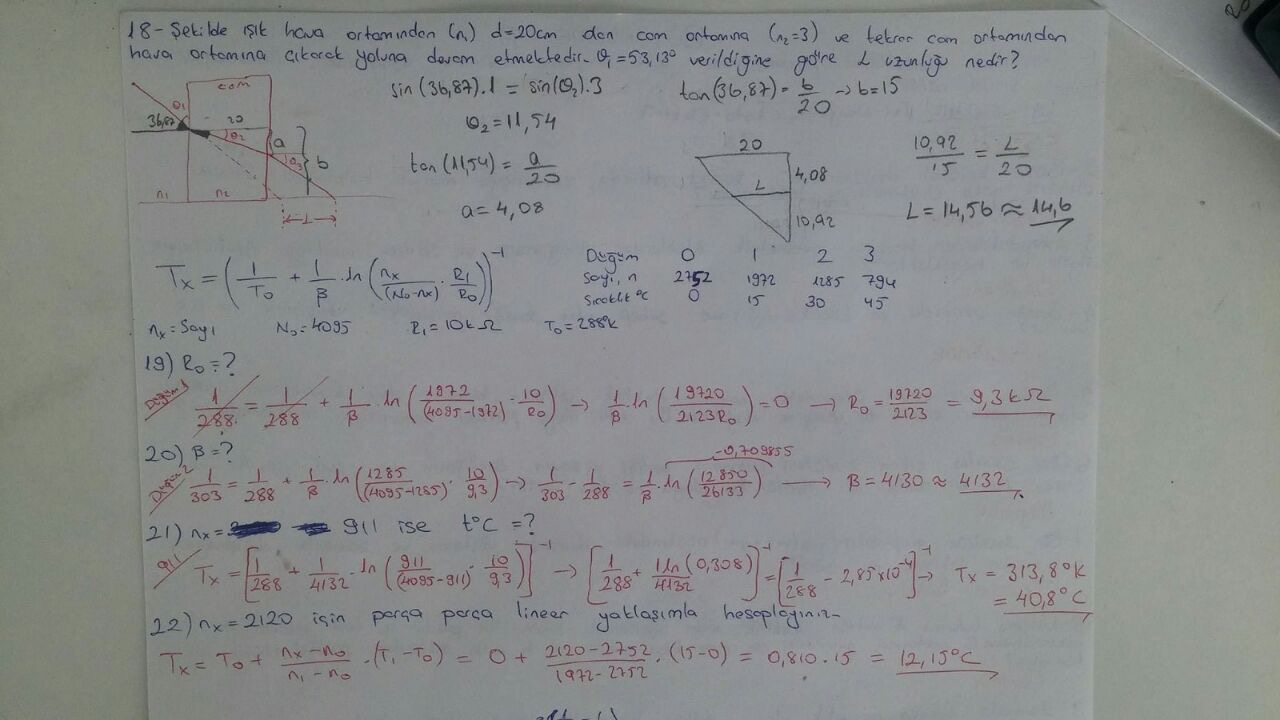 18- Şekilde ışık hava ortamından (n₁) d=20cm dan cam ortamına (n₂=3) ve tekrar cam ortamından
hava ortamına çıkarak yoluna devam etmektedir. θ₁=53,13° verildiğine göre L uzunluğu nedir?
cam
θ₁
36,87
20
θ₂
a
θ₃
b
n₁
n₂
L
sin(36,87).1 = sin(θ₂).3
θ₂=11,54
tan(11,54) = a/20
a=4,08
tan(36,87) = b/20 → b=15
20
4,08
L
10,92
10,92/15 = L/20
L = 14,56 ≈ 14,6
Tx = (1/T₀ + 1/β . ln(nx/(N₀-nx) . R₁/R₀))⁻¹
Düğüm 0 1 2 3
Sayı, n 2752 1972 1285 794
Sıcaklık °C 0 15 30 45
nx = Sayı N₀=4095 R₁=10kΩ T₀=288°k
19) R₀=?
Düğüm 1
1/288 = 1/288 + 1/β . ln(1972/(4095-1972) . 10/R₀) → 1/β ln(19720/2123R₀) = 0 → R₀ = 19720/2123 = 9,3kΩ
20) β=?
Düğüm 2
-0,709855
1/303 = 1/288 + 1/β . ln(1285/(4095-1285) . 10/9,3) → 1/303 - 1/288 = 1/β . ln(12850/26133) → β = 4130 ≈ 4132
21) nx= 911 ise t°C =?
911
Tx = [1/288 + 1/4132 . ln(911/(4095-911) . 10/9,3)]⁻¹ → [1/288 + 1 ln(0,308)/4132]⁻¹ = [1/288 - 2,85x10⁻⁴]⁻¹ → Tx = 313,8°K
= 40,8°C
22) nx=2120 için parça parça lineer yaklaşımla hesaplayınız-
Tx = T₀ + nx-n₀/n₁-n₀ . (T₁-T₀) = 0 + 2120-2752/1972-2752 . (15-0) = 0,810.15 = 12,15°C